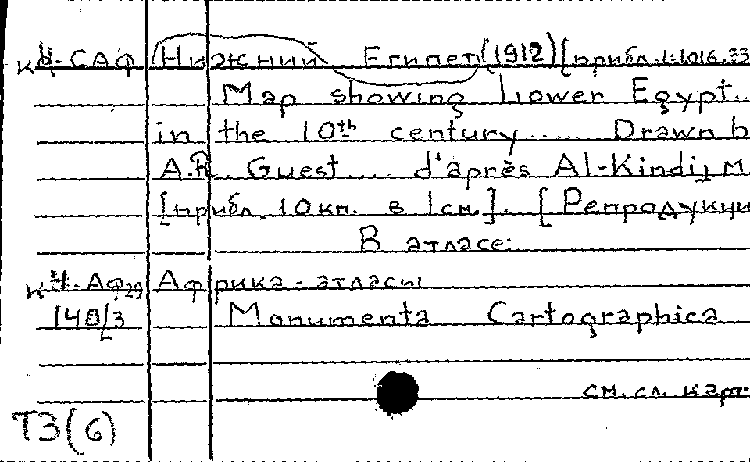 К Ч-САФ Нижний Египет (1912) [прибл. 1:1016.33
Map showing Lower Egypt..
in the 10th century...... Drawn b
A.R. Guest.... d'après Al-Kindi, M
[прибл. 10 км. в 1 см.]. [Репродукци
В атласе:
К Ч-Аф29 Африка - атласы
140/3 Monumenta Cartographica
см. сл. карт
Т3(6)